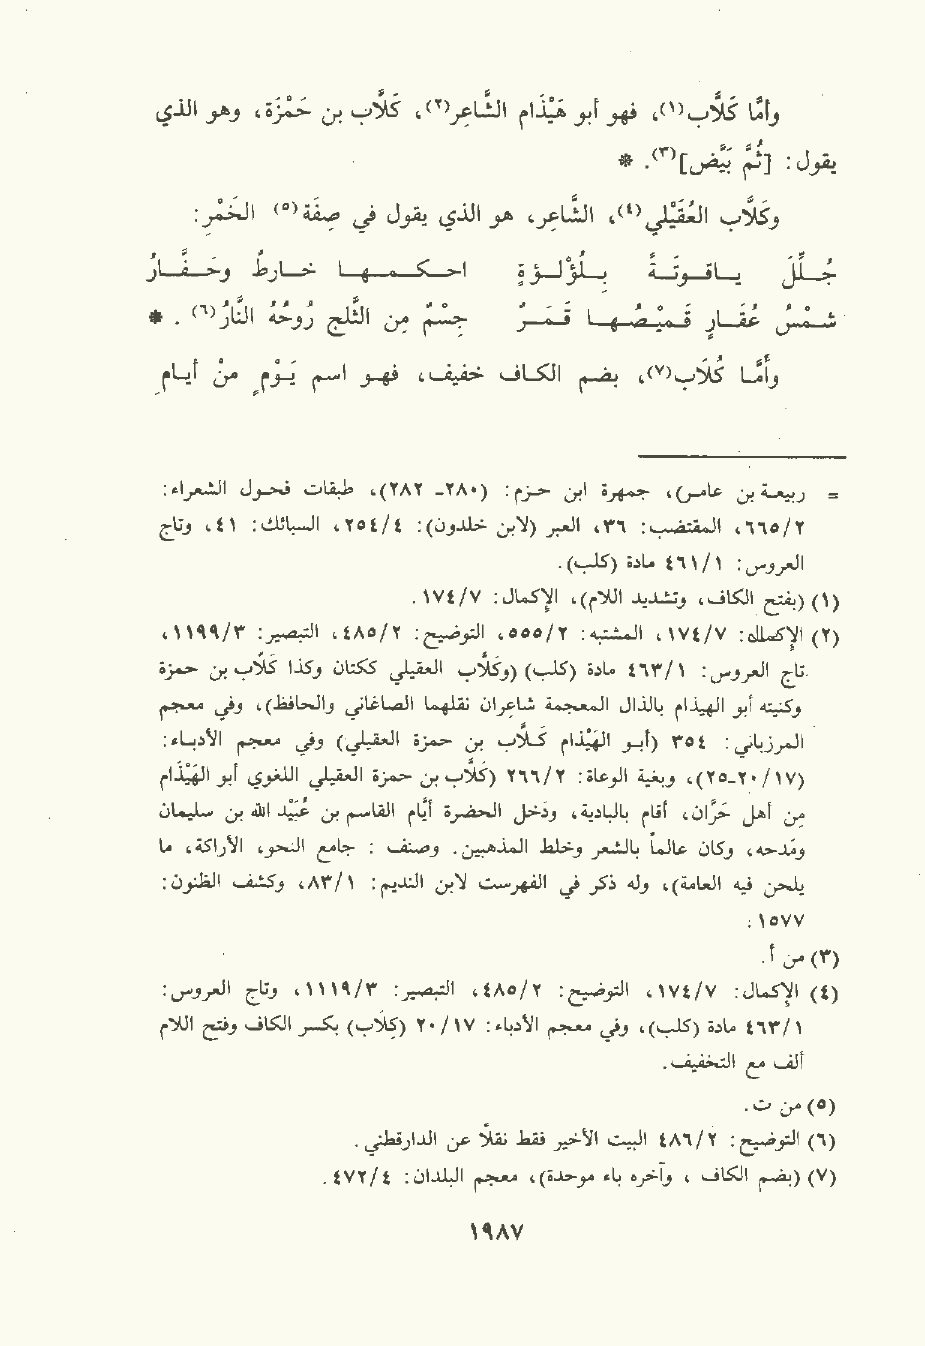 وأمَّا كَلَّاب(١)، فهو أبو هَيْذَام الشَّاعِر(٢)، كَلَّاب بن حَمْزَة، وهو الذي
يقول: [ثُمَّ بَيَّض](٣). *
وكَلَّاب العُقَيْلي(٤)، الشَّاعِر، هو الذي يقول في صِفَة(٥) الخَمْرِ:
جُلِّلَ يَاقوتَةً بِلُؤْلُؤةٍ احاكها خارطُ وحَفَّارُ
شَمْسُ عُقَارٍ قَميْصُها قَمَرٌ جِسْمٌ مِن الثَّلج رُوحُهُ النَّارُ(٦). *
وأَمَّا كُلَاب(٧)، بضم الكاف خفيف، فهو اسم يَوْمٍ مِنْ أيامِ
= ربيعة بن عامر)، جمهرة ابن حزم: (٢٨٠- ٢٨٢)، طبقات فحول الشعراء:
٦٦٥/٢، المقتضب: ٣٦، العبر (لابن خلدون): ٢٥٤/٤، السبائك: ٤١، وتاج
العروس: ٤٦١/١ مادة (كلب).
(١) (بفتح الكاف، وتشديد اللام)، الإكمال: ١٧٤/٧.
(٢) الإكمال: ١٧٤/٧، المشتبه: ٥٥٥/٢، التوضيح: ٤٨٥/٢، التبصير: ١١٩٩/٣،
تاج العروس: ٤٦٣/١ مادة (كلب) (وكَلَّاب العقيلي ككتان وكذا كَلَّاب بن حمزة
وكنيته أبو الهيذام بالذال المعجمة شاعِران نقلهما الصاغاني والحافظ)، وفي معجم
المرزباني: ٣٥٤ (أبو الهَيْذام كَلَّاب بن حمزة العقيلي) وفي معجم الأدباء:
(٢٠/١٧-٢٥)، وبغية الوعاة: ٢٦٦/٢ (كَلَّاب بن حمزة العقيلي اللغوي أبو الهَيْذام
مِن أهل حَرَّان، أقام بالبادية، ودَخل الحضرة أيَّام القاسم بن عُبَيْد الله بن سليمان
ومَدحه، وكان عالماً بالشعر وخلط المذهبين. وصنف: جامع النحو، الأراكة، ما
يلحن فيه العامة)، وله ذكر في الفهرست لابن النديم: ٨٣/١، وكشف الظنون:
١٥٧٧.
(٣) من أ.
(٤) الإكمال: ١٧٤/٧، التوضيح: ٤٨٥/٢، التبصير: ١١١٩/٣، وتاج العروس:
٤٦٣/١ مادة (كلب)، وفي معجم الأدباء: ٢٠/١٧ (كِلَاب) بكسر الكاف وفتح اللام
ألف مع التخفيف.
(٥) من ت.
(٦) التوضيح: ٤٨٦/٢ البيت الأخير فقط نقلًا عن الدارقطني.
(٧) (بضم الكاف، وآخره باء موحدة)، معجم البلدان: ٤٧٢/٤.
١٩٨٧